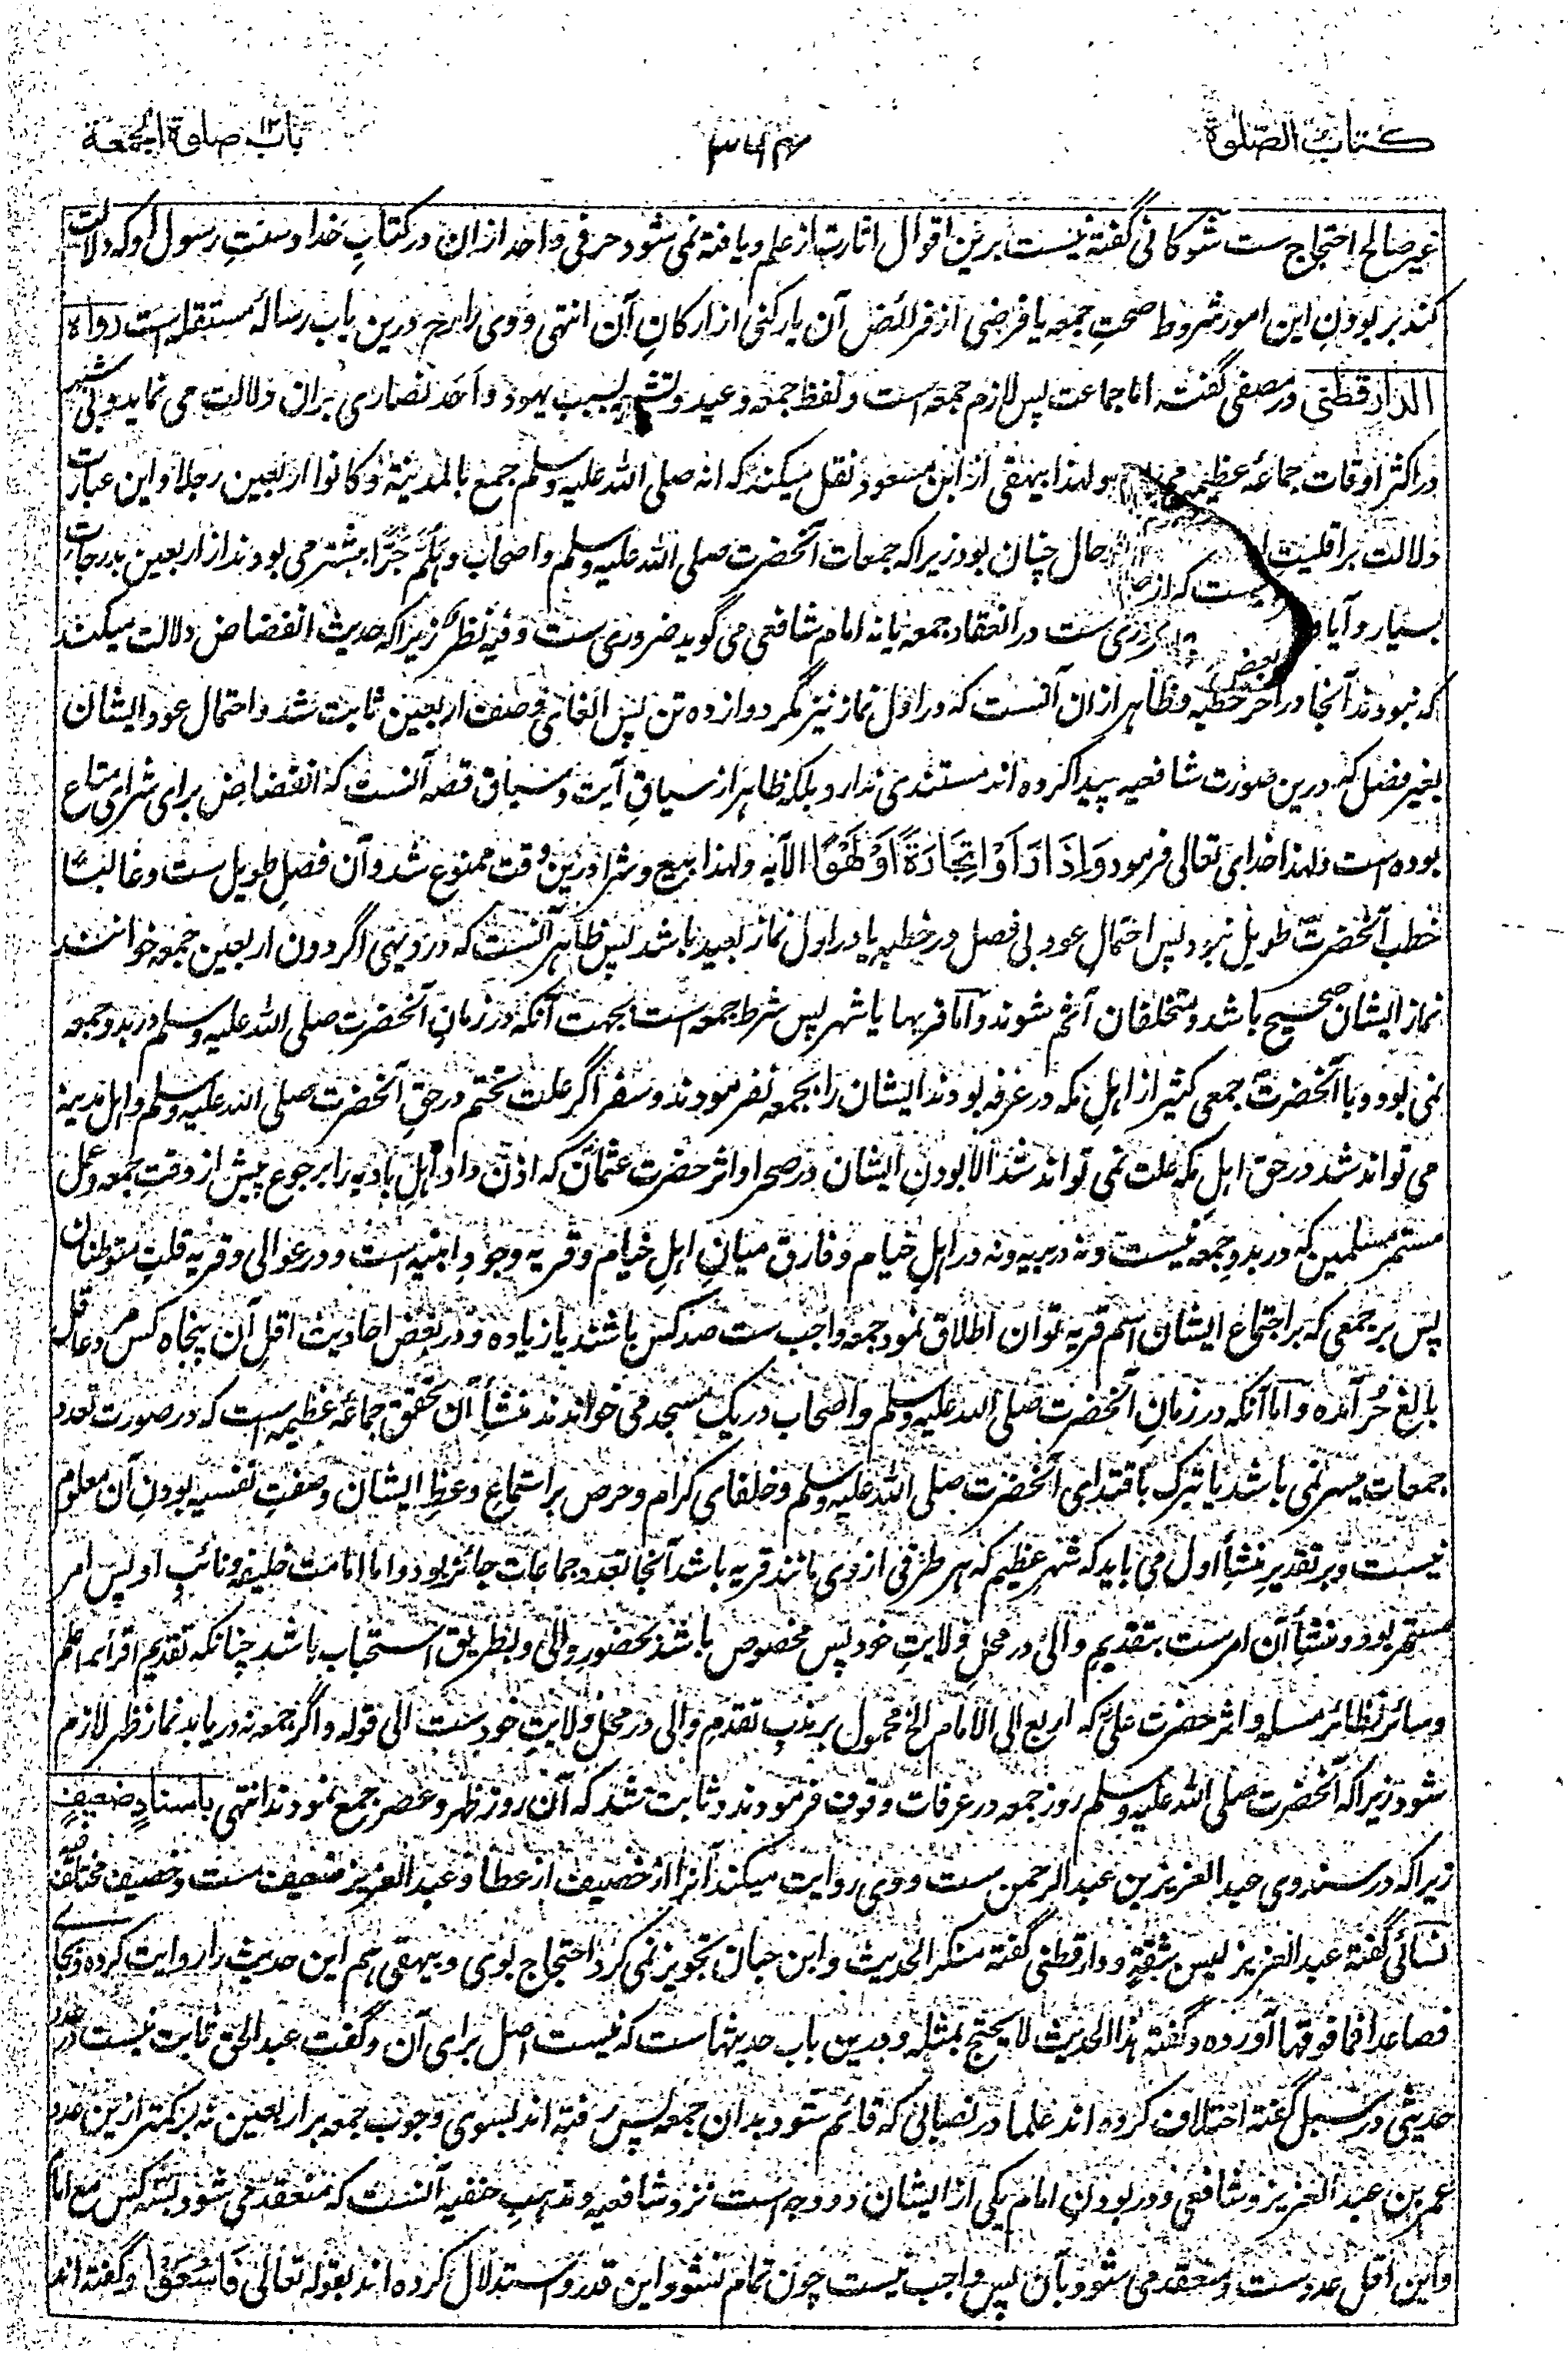 کتاب الصلوة
۳۶۴
باب صلوة الجمعة
غیر صالح احتجاج ست شوکانی گفته نیست برین اقوال اثارت از علم و یافته نمی شود حرفی واحد ازان در کتاب خدا و سنت رسول او که دلالت
کند بر بودن این امور شروط صحت جمعه یا فرضی از فرائض آن یا رکنی از ارکان آن انتهی ووی را رح درین باب رسالهٔ مستقله است رواه
الدارقطنی در مصفی گفته اما جماعت پس لازم جمعه است و لفظ جمعه و عید و بسبب یهود و احد نصاری بران دلالت می نماید و بی شبه
در اکثر اوقات جماعهٔ عظیمه ولهذا بیهقی از ابن مسعود نقل میکند که انه صلی الله علیه وسلم جمع بالمدینة وکانوا اربعین رجلا و این عبارت
دلالت بر اقلیت حال چنان بود زیرا که جمعات آنحضرت صلی الله علیه وسلم واصحاب وهلم جرا بیشتر می بودند از اربعین بدرجات
بسیار و آیا ضروری ست در انعقاد جمعه یا نه امام شافعی می گوید ضروری ست وفیه نظر زیرا که حدیث انفضاض دلالت میکند
که نبودند آنجا در آخر خطبه وظاهر ازان آنست که در اول نماز نیز مگر دوازده تن پس الغای وصف اربعین ثابت شد و احتمال عود ایشان
بغیر فصل که درین صورت شافعیه پیدا کرده اند مستندی ندارد بلکه ظاهر از سیاق آیت و سیاق قصه آنست که انفضاض برای شرای متاع
بوده است ولهذا خدای تعالی فرمود وَاِذَا رَاَوْا تِجَارَةً اَوْ لَهْوًا الآیه ولهذا بیع و شرا درین وقت ممنوع شد و آن فصل طویل ست وغالبًا
خطب آنحضرت طویل نبود پس احتمال عود بی فصل در خطبه یا در اول نماز بعید باشد پس ظاهر آنست که در دیهی اگر دون اربعین جمعه خوانند
نماز ایشان صحیح باشد و متخلفان آثم شوند و اما قریها یا شهر پس شرط جمعه است بجهت آنکه در زمان آنحضرت صلی الله علیه وسلم در بدو جمعه
نمی بود و با آنحضرت جمعی کثیر از اهل مکه در عرفه بودند ایشان را بجمعه نفرمودند و سفر اگر علت تختم در حق آنحضرت صلی الله علیه وسلم واهل مدینه
می تواند شد در حق اهل مکه علت نمی تواند شد الا بودن ایشان در صحرا و اثر حضرت عثمان که اذن داد اهل بادیه را برجوع پیش از وقت جمعه وعمل
مستمر مسلمین که در بدو جمعه نیست و نه در بریه و نه در اهل خیام و فارق میان اهل خیام و قریه وجود ابنیه است و در عوالی و قریه قلت متوطنان
پس بر جمعی که بر اجتماع ایشان اسم قریه توان اطلاق نمود جمعه واجب ست صد کس باشند یا زیاده و در بعض احادیث اقل آن پنجاه کس مرد عاقل
بالغ حُر آمده و اما آنکه در زمان آنحضرت صلی الله علیه وسلم واصحاب در یک مسجد می خواندند منشأ آن تحقق جماعهٔ عظیمه است که در صورت تعدد
جمعات میسر نمی باشد یا تبرک باقتدای آنحضرت صلی الله علیه وسلم و خلفای کرام و حرص بر استماع وعظ ایشان وصفت نفسیه بودن آن معلوم
نیست و بر تقدیر منشأ اول می باید که شهر عظیم که هر طرفی از وی مانند قریه باشد آنجا تعدد جماعات جائز بود و اما امامت خلیفه و نائب او پس امر
مستمر بود و منشأ آن امر ست بتقدیم والی در محل ولایت خود پس مخصوص باشد بحضور والی و بطریق استحباب باشد چنانکه تقدیم اقرأ اعلم
وسائر نظائر مسله و اثر حضرت علی که اربع الی الامام الخ محمول بر ندب تقدم والی در محل ولایت خودست الی قوله و اگر جمعه نه دریابد نماز ظهر لازم
شود زیرا که آنحضرت صلی الله علیه وسلم روز جمعه در عرفات وقوف فرمودند و ثابت شد که آن روز ظهر و عصر جمع نمودند انتهی باسناد ضعیف
زیرا که در سند وی عبد العزیز بن عبد الرحمن ست و وی روایت میکند آنرا از خصیف از عطا و عبد العزیز ضعیف ست و خصیف مختلف فیه
نسائی گفته عبد العزیز لیس بثقةٍ و دارقطنی گفته منکر الحدیث و ابن حبان تجویز نمی کرد احتجاج بوی و بیهقی هم این حدیث را روایت کرده و بجای
فصاعدا فما فوقها آورده و گفته هذا الحدیث لا یحتج بمثله و بدین باب حدیثهاست که نیست اصل برای آن و گفت عبد الحق ثابت نیست در عدد
حدیثی در سبل گفته اختلاف کرده اند علما در نصابی که قائم شود بدان جمعه پس رفته اند بسوی وجوب جمعه بر اربعین نه بر کمتر ازین عدد
عمر بن عبد العزیز و شافعی و در بودن امام یکی از ایشان دو وجه است نزد شافعیه و مذهب حنفیه آنست که منعقد می شود بسه کس مع امام
و این اقل عددست که منعقد می شود بآن پس واجب نیست چون تمام نشود این قدر و استدلال کرده اند بقوله تعالی فَاسْعَوْا و گفته اند